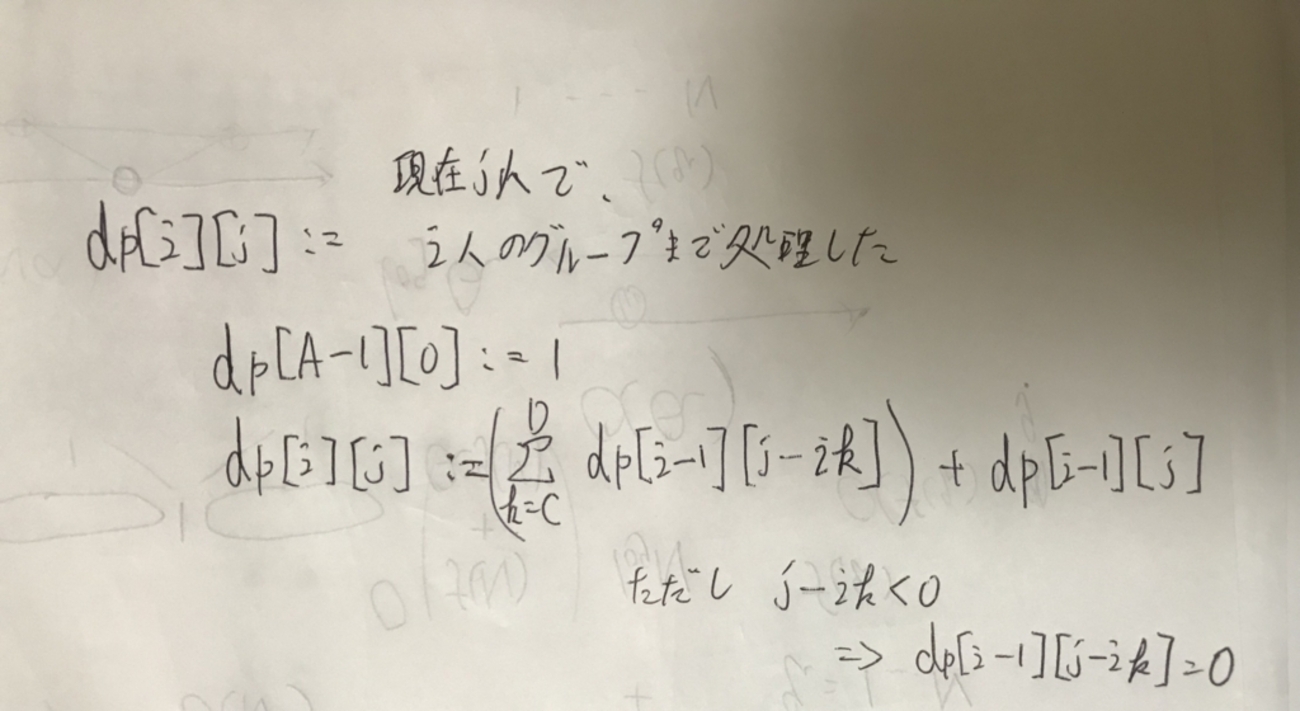 現在j人で、
dp[i][j] := i人のグループまで処理した
dp[A-1][0] := 1
dp[i][j] := (∑_{k=C}^{D} dp[i-1][j-ik]) + dp[i-1][j]
ただし j-ik<0
=> dp[i-1][j-ik]=0